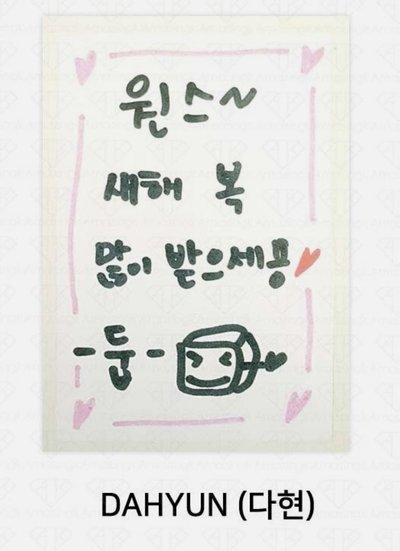 원스~
새해 복
많이 받으세용
-둡-
DAHYUN (다현)